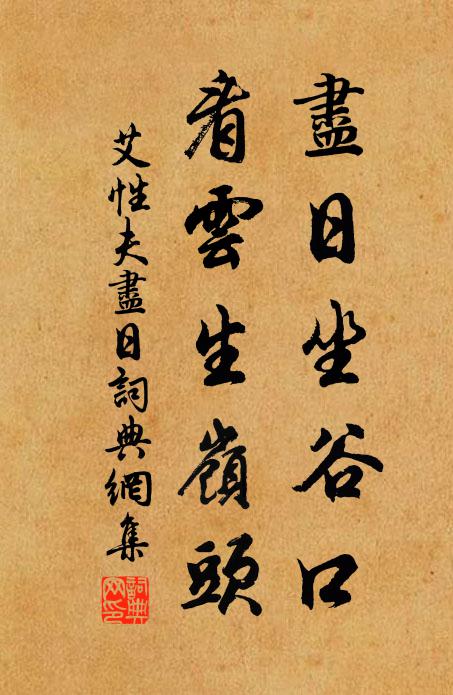 盡日坐谷口
看雲生嶺頭
艾性夫盡日詞典網集
詞典網印